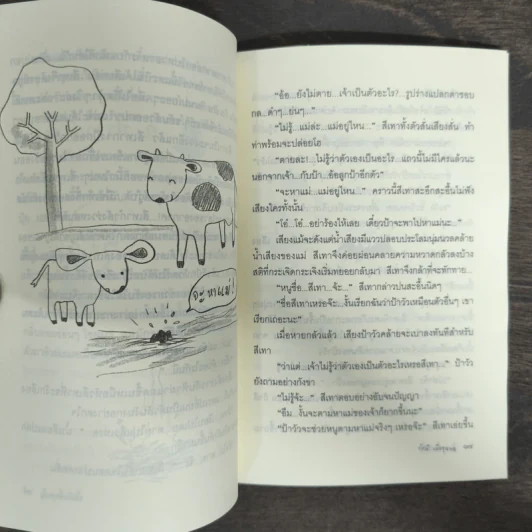 จะหาแม่!
"อ้อ...ยังไม่ตาย...เจ้าเป็นตัวอะไร?...รูปร่างแปลกตารอบ
กด..ดำๆ...ย่นๆ..."
"ไม่รู้...แม่ล่ะ...แม่อยู่ไหน..." สีเทาทั้งตัวสั่นเสียงสั่น ทำ
ท่าพร้อมจะปล่อยโฮ
"ตายละ...ไม่รู้ว่าตัวเองเป็นอะไร..แถวนี้ไม่มีใครแล้วนะ
นอกจากเจ้า..กับป้า...อ้อลูกป้าอีกตัว"
"จะหาแม่...แม่อยู่ไหน..." คราวนี้สีเทาสะอึกสะอื้นไม่ฟัง
เสียงใครทั้งนั้น
"โอ๋...โอ๋...อย่าร้องไห้เลย เดี๋ยวป้าจะพาไปหาแม่นะ..."
เสียงแม้จะดังแต่น้ำเสียงมีแววปลอบประโลมนุ่มนวลคล้าย
น้ำเสียงของแม่ สีเทาจึงค่อยผ่อนคลายความหวาดกลัวลงบ้าง
สติที่กระเจิดกระเจิงเริ่มทยอยกลับมา สีเทาจึงกล้าที่จะทักทาย...
"หนูชื่อ..สีเทา...จ้ะ..." สีเทากล่าวปนสะอื้นนิดๆ
"ชื่อสีเทาเหรอจ๊ะ...งั้นเรียกฉันว่าป้าวัวเหมือนตัวอื่นๆ เขา
เรียกเถอะนะ"
เมื่อหายกลัวแล้ว เสียงป้าวัวคล้ายจะเบาลงทันทีสำหรับ
สีเทา
"ว่าแต่...เจ้าไม่รู้ว่าตัวเองเป็นตัวอะไรเหรอสีเทา..." ป้าวัว
ยังถามอย่างกังขา
"ไม่รู้จ้ะ..." สีเทาตอบอย่างอับจนปัญญา
"อืม...งั้นจะตามหาแม่ของเจ้าก็ยากขึ้นนะ"
"ป้าวัวจะช่วยหนูตามหาแม่จริงๆ เหรอจ๊ะ" สีเทาเงยขึ้น